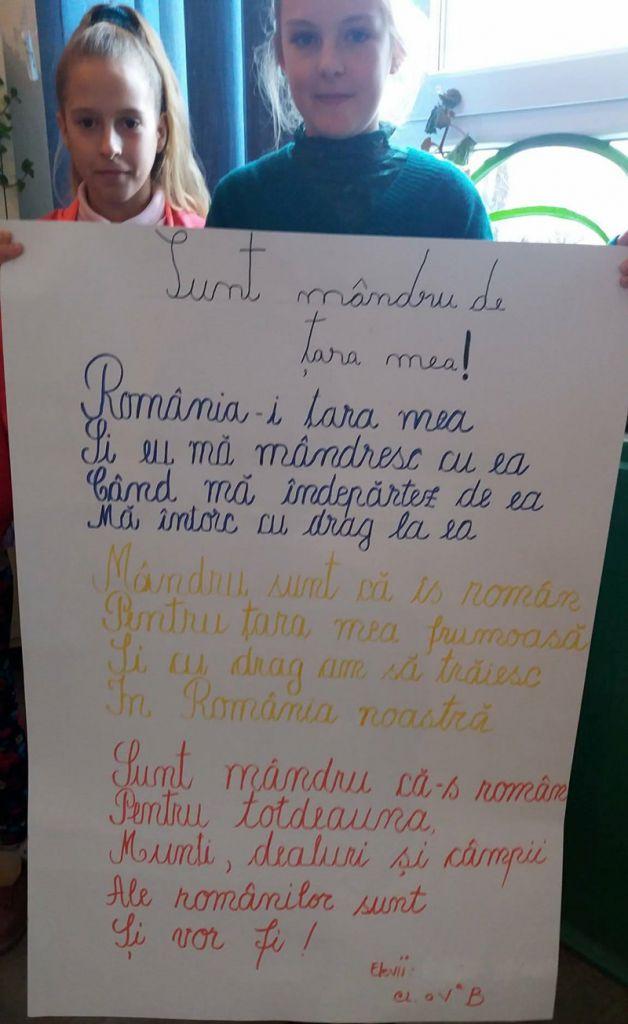 Sunt mândru de
țara mea!
România-i țara mea
Și eu mă mândresc cu ea
Când mă îndepărtez de ea
Mă întorc cu drag la ea
Mândru sunt că îs român
Pentru țara mea frumoasă
Și cu drag am să trăiesc
În România noastră
Sunt mândru că-s român
Pentru totdeauna,
Munti, dealuri și câmpii
Ale românilor sunt
Și vor fi!
Elevii
cl. a V^a B